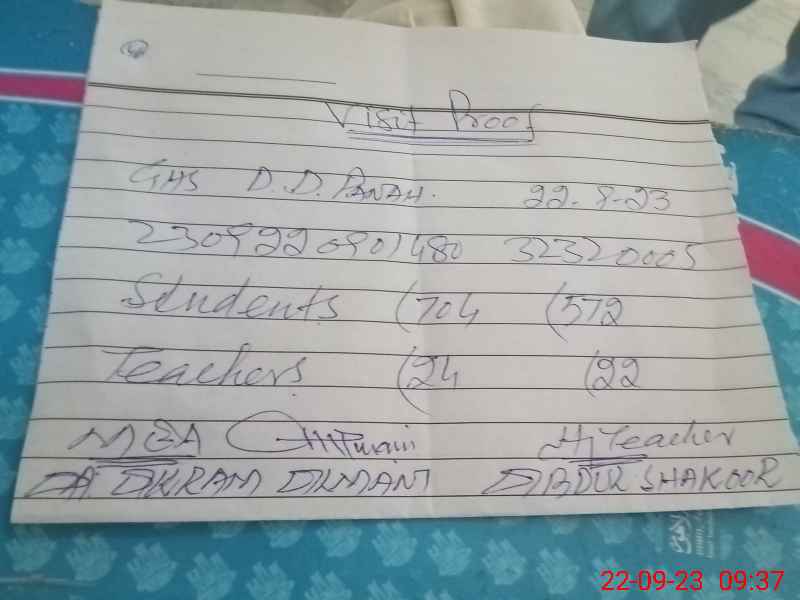 Visit Proof
GHS D.D. PANAH. 22-9-23
2309220901480 32320005
Students (704 (572
Teachers (24 (22
MEA H/Teacher
IKRAM ABDUL SHAKOOR
22-09-23 09:37